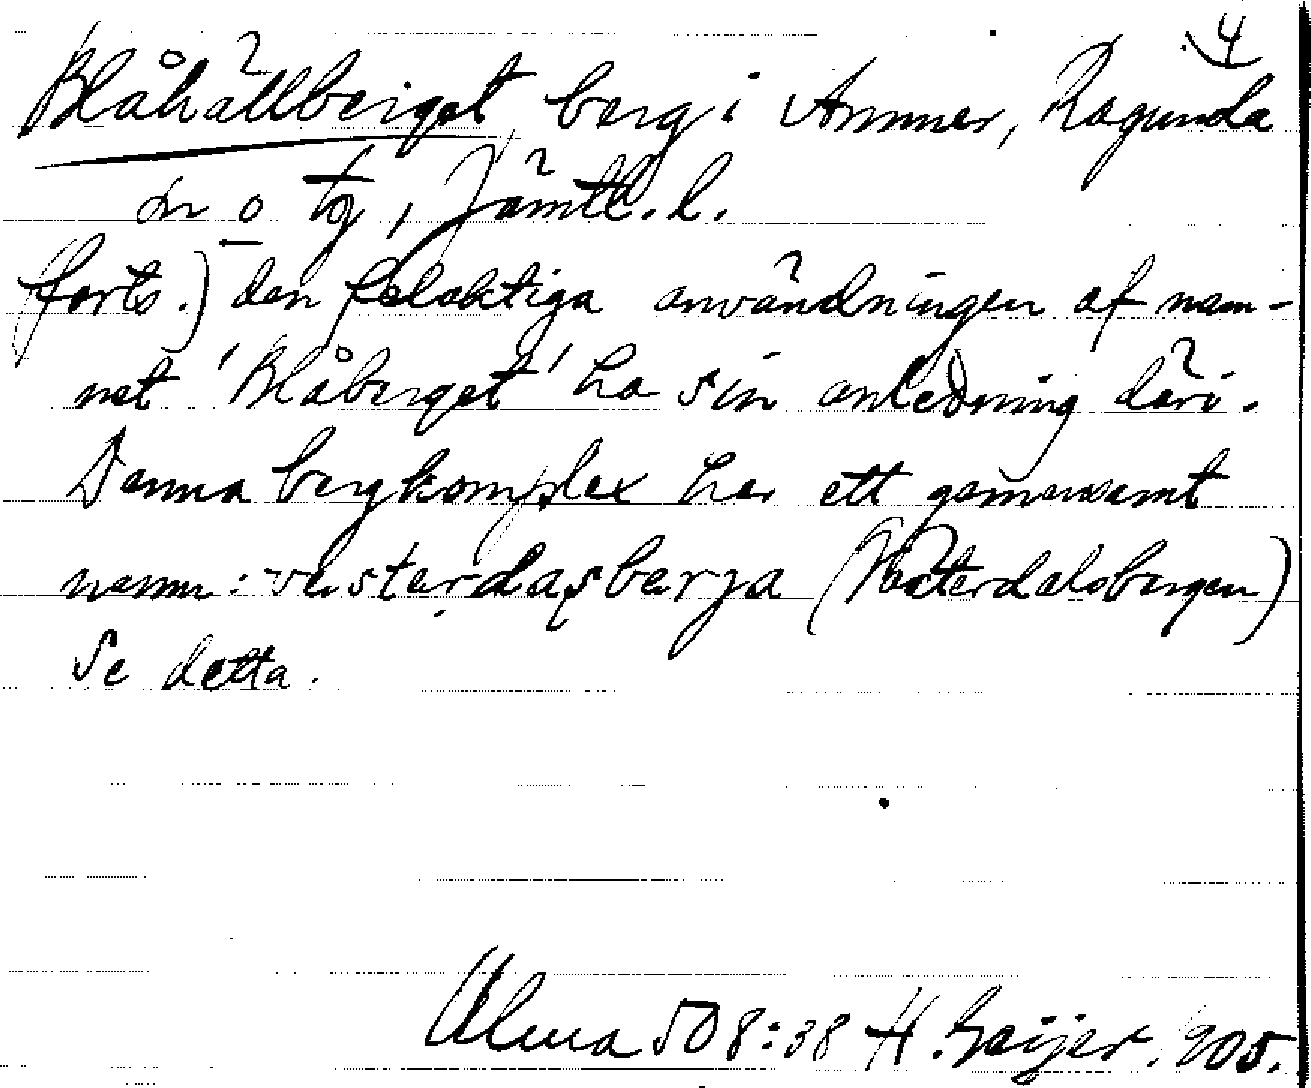 4
Blåhällberget berg i Ammer, Ragunda
sn o tg, Jämtl. l.
forts.) den felaktiga användningen af nam-
net 'Blåberget' ha sin anledning däri.
Denna bergkomplex har ett gemensamt
namn: västerdasberja (Västerdalsbergen)
Se detta.
Ulma 508:38 H. Geijer. 1905.